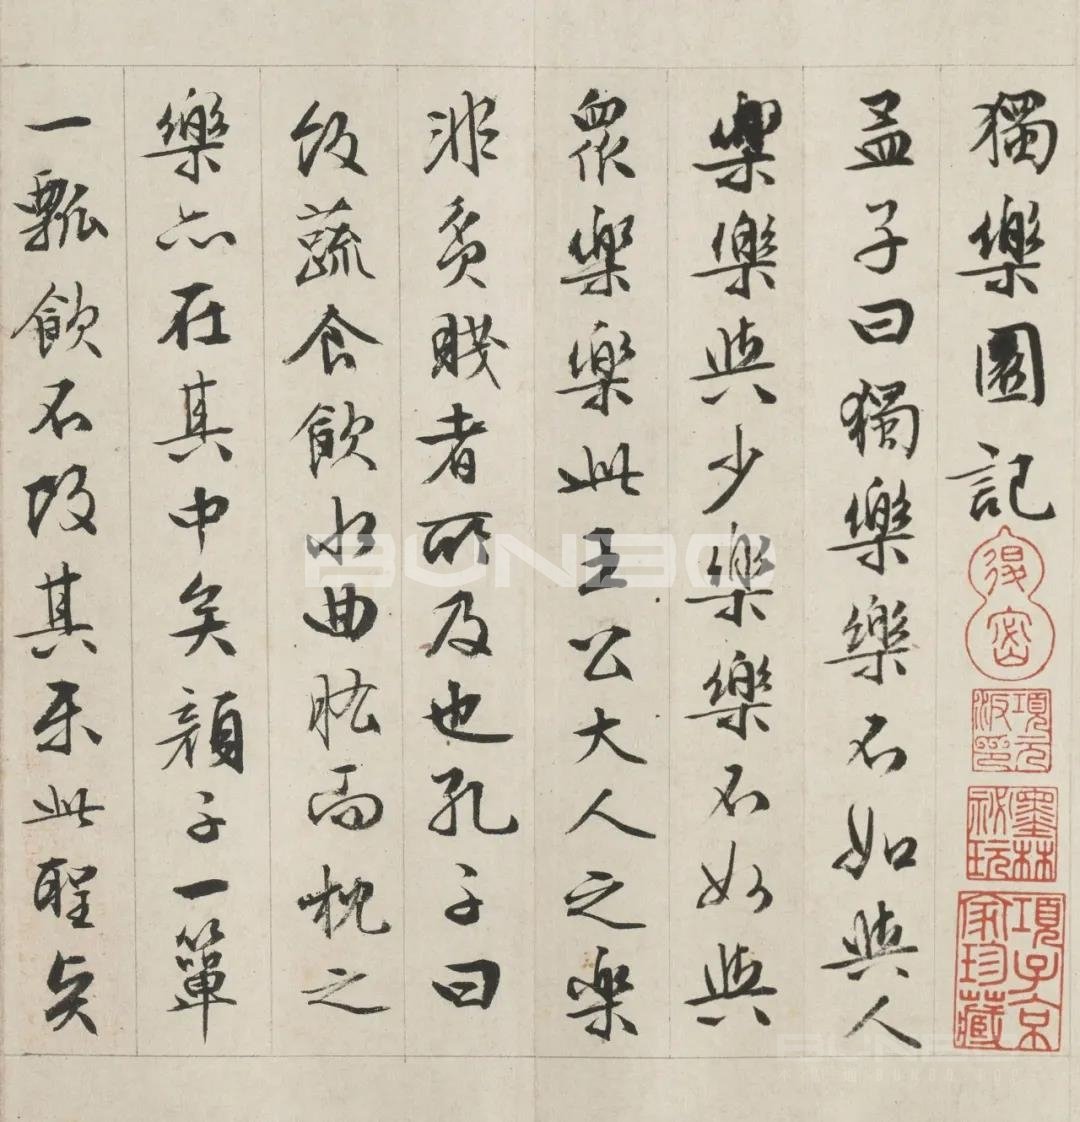 獨樂園記
孟子曰獨樂樂不如與人
樂樂與少樂樂不如與
衆樂樂此王公大人之樂
非貧賤者所及也孔子曰
飯蔬食飲水曲肱而枕之
樂亦在其中矣顏子一簞
一瓢飲不改其樂此聖賢
項元汴印
墨林祕玩
項子京家珍藏
BUNBO